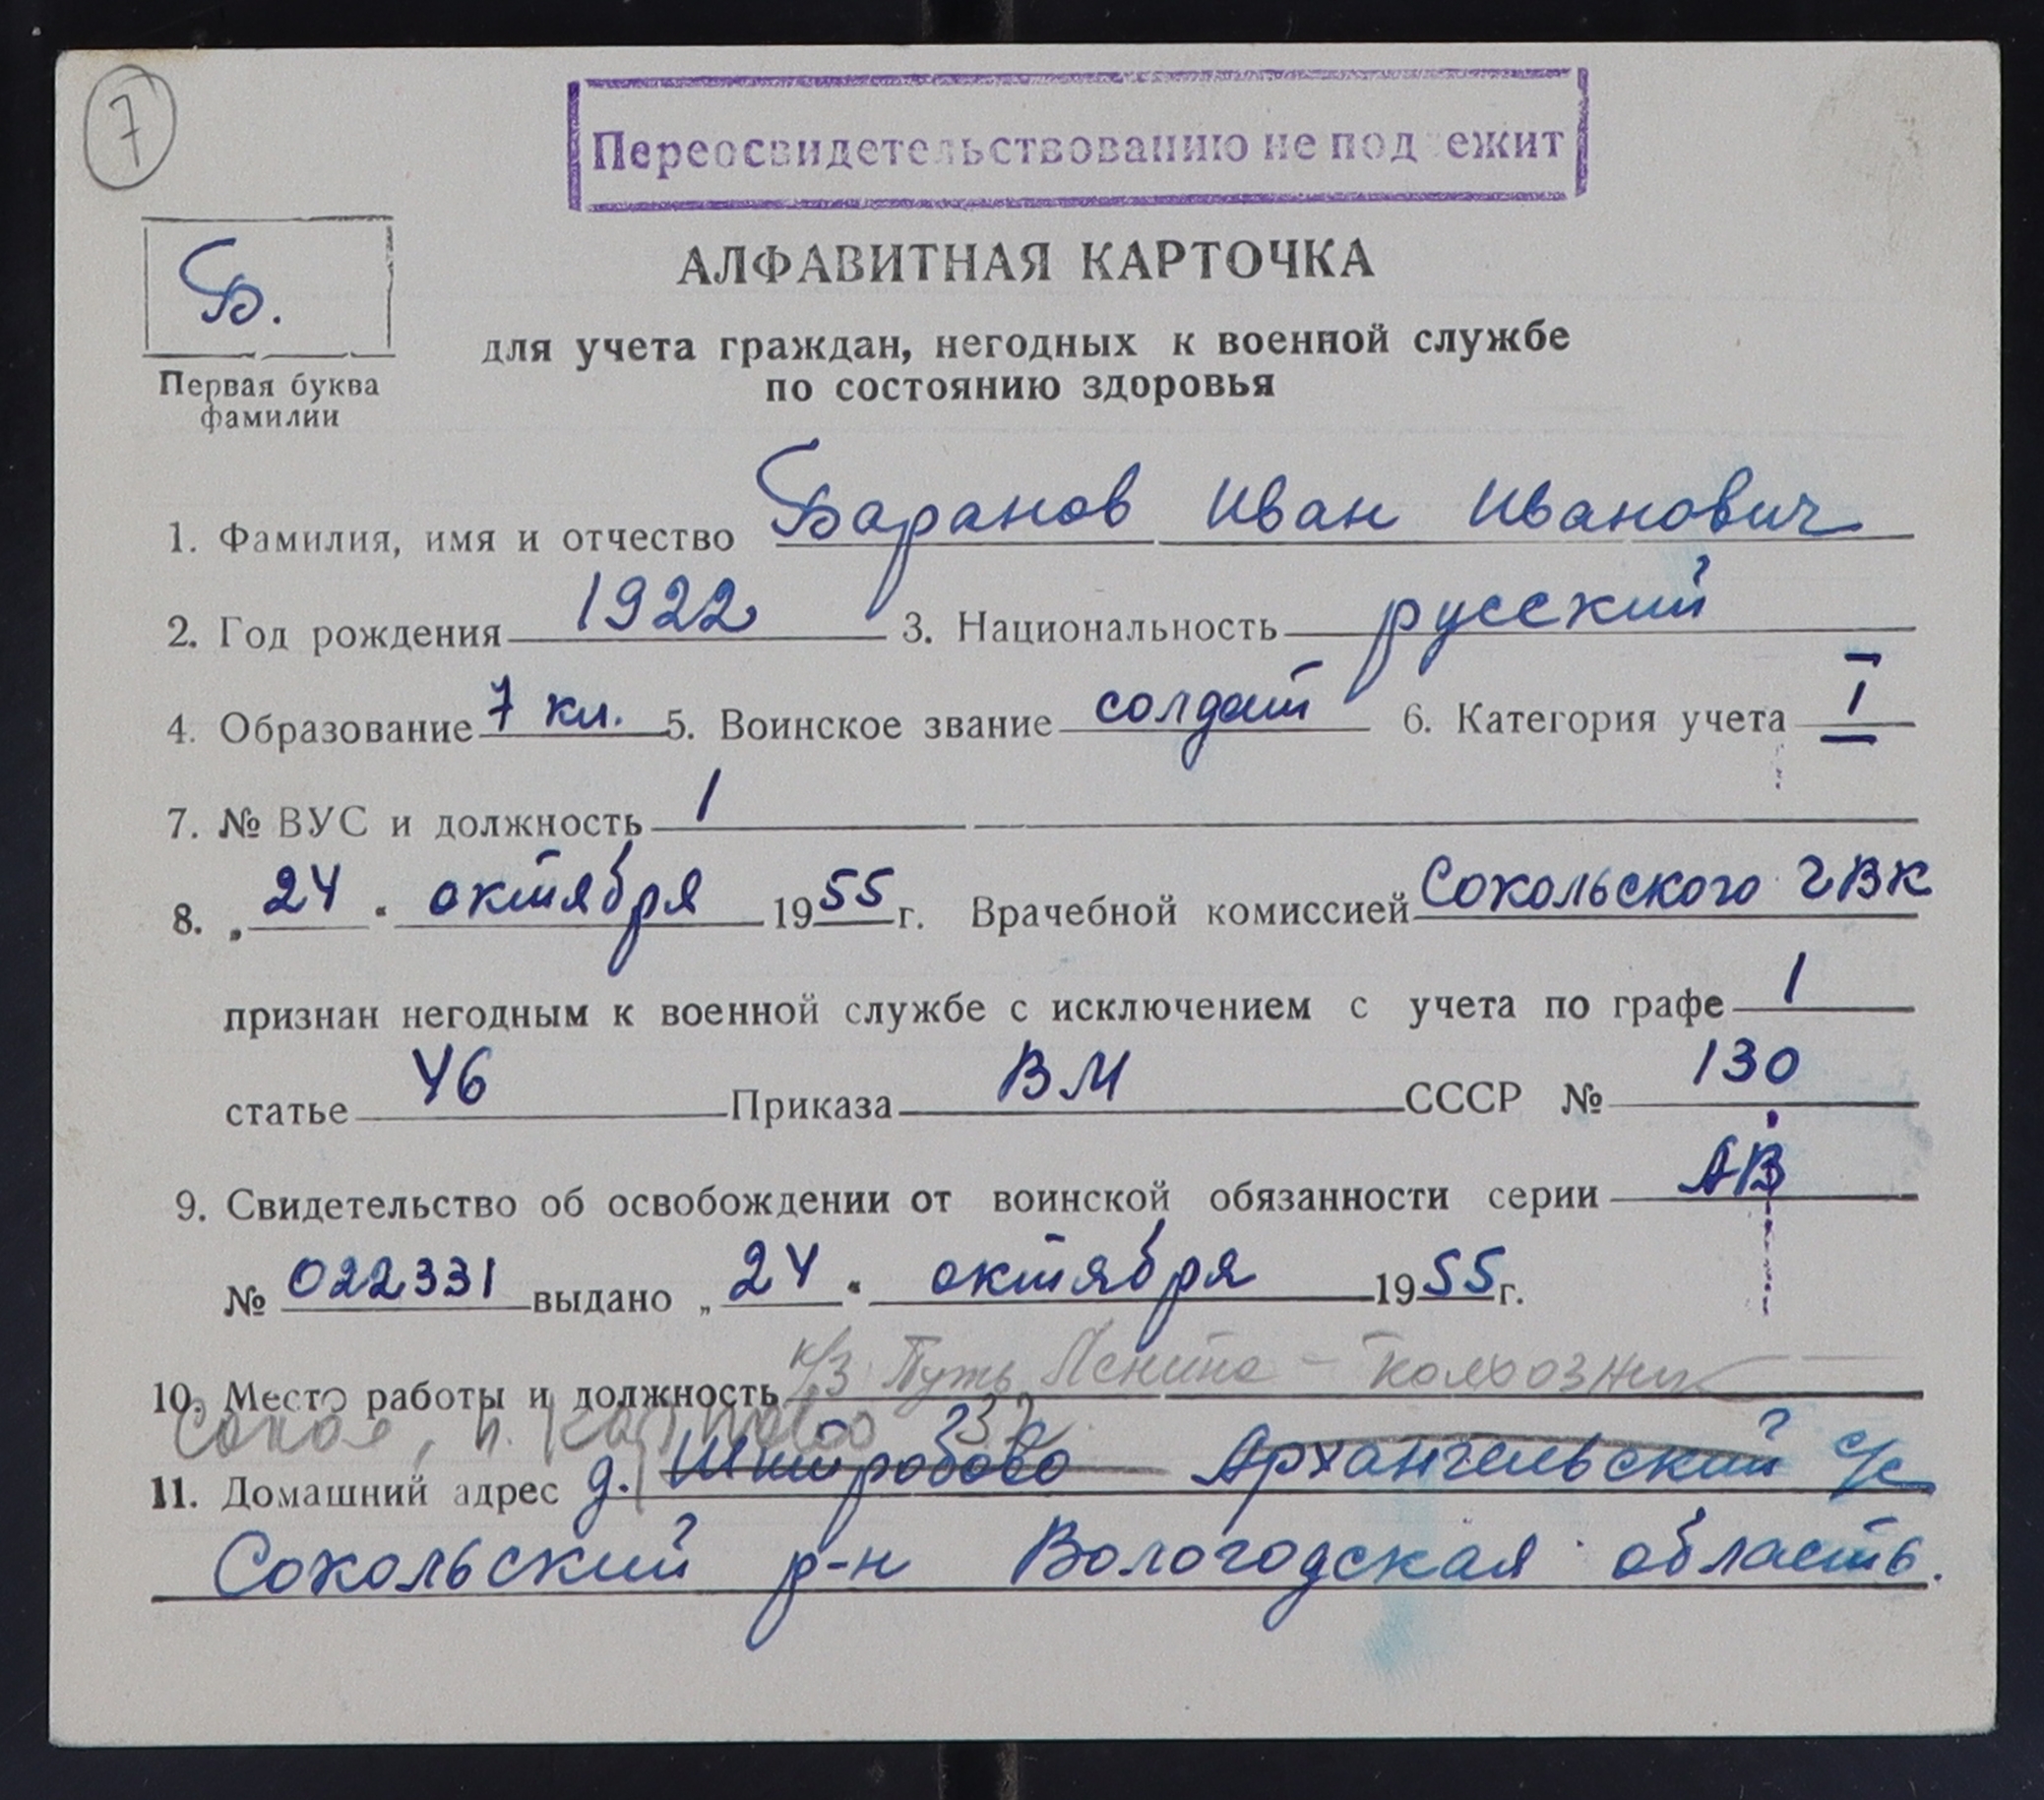 7
Переосвидетельствованию не подлежит
Б.
Первая буква
фамилии
АЛФАВИТНАЯ КАРТОЧКА
для учета граждан, негодных к военной службе
по состоянию здоровья
1. Фамилия, имя и отчество Баранов Иван Иванович
2. Год рождения 1922 3. Национальность русский
4. Образование 7 кл. 5. Воинское звание солдат 6. Категория учета I
7. № ВУС и должность 1
8. „24" октября 1955 г. Врачебной комиссией Сокольского ГВК
признан негодным к военной службе с исключением с учета по графе 1
статье 46 Приказа ВМ СССР № 130
9. Свидетельство об освобождении от воинской обязанности серии АВ
№ 022331 выдано „24" октября 1955 г.
10. Место работы и должность к/з Путь Ленина - колхозник
Сокол, п.
11. Домашний адрес д. Архангельский с/с
Сокольский р-н Вологодская область.